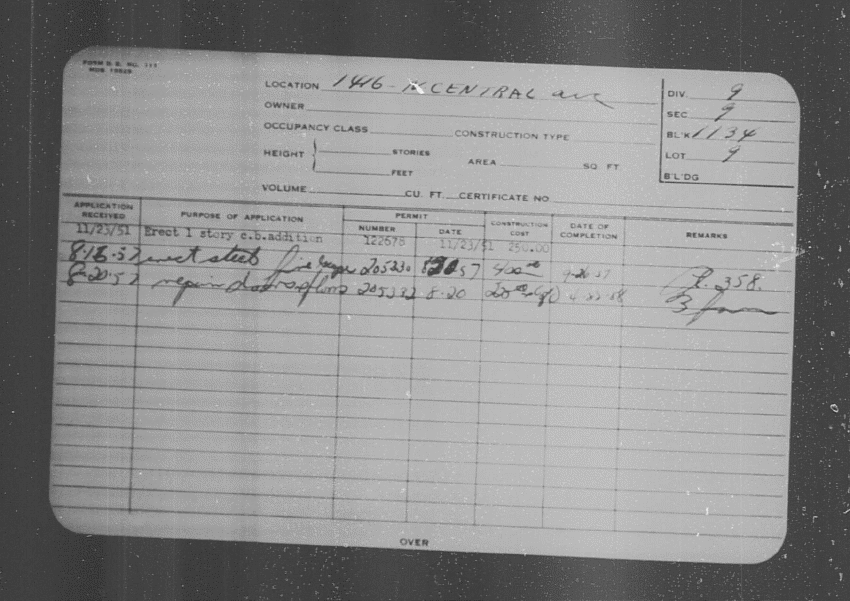 FORM B. B. NO. 311
LOCATION 1416 - N CENTRAL ave DIV. 9
OWNER SEC 9
OCCUPANCY CLASS CONSTRUCTION TYPE BL'K 1134
HEIGHT { STORIES AREA SQ FT LOT 9
FEET B'L'DG
VOLUME CU. FT. CERTIFICATE NO
APPLICATION RECEIVED PURPOSE OF APPLICATION PERMIT NUMBER DATE CONSTRUCTION COST DATE OF COMPLETION REMARKS
11/23/51 Erect 1 story c.b.addition 122678 11/23/51 250.00
8-13-57 erect steel fire 205230 82057 400 9-26-57 R. 358.
8-20-57 repair doors floors 205232 8-20 4-23-58 3
OVER